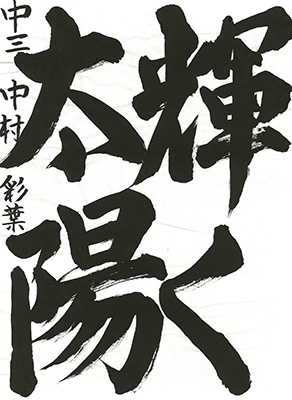 輝く
太陽
中三 中村 彩葉